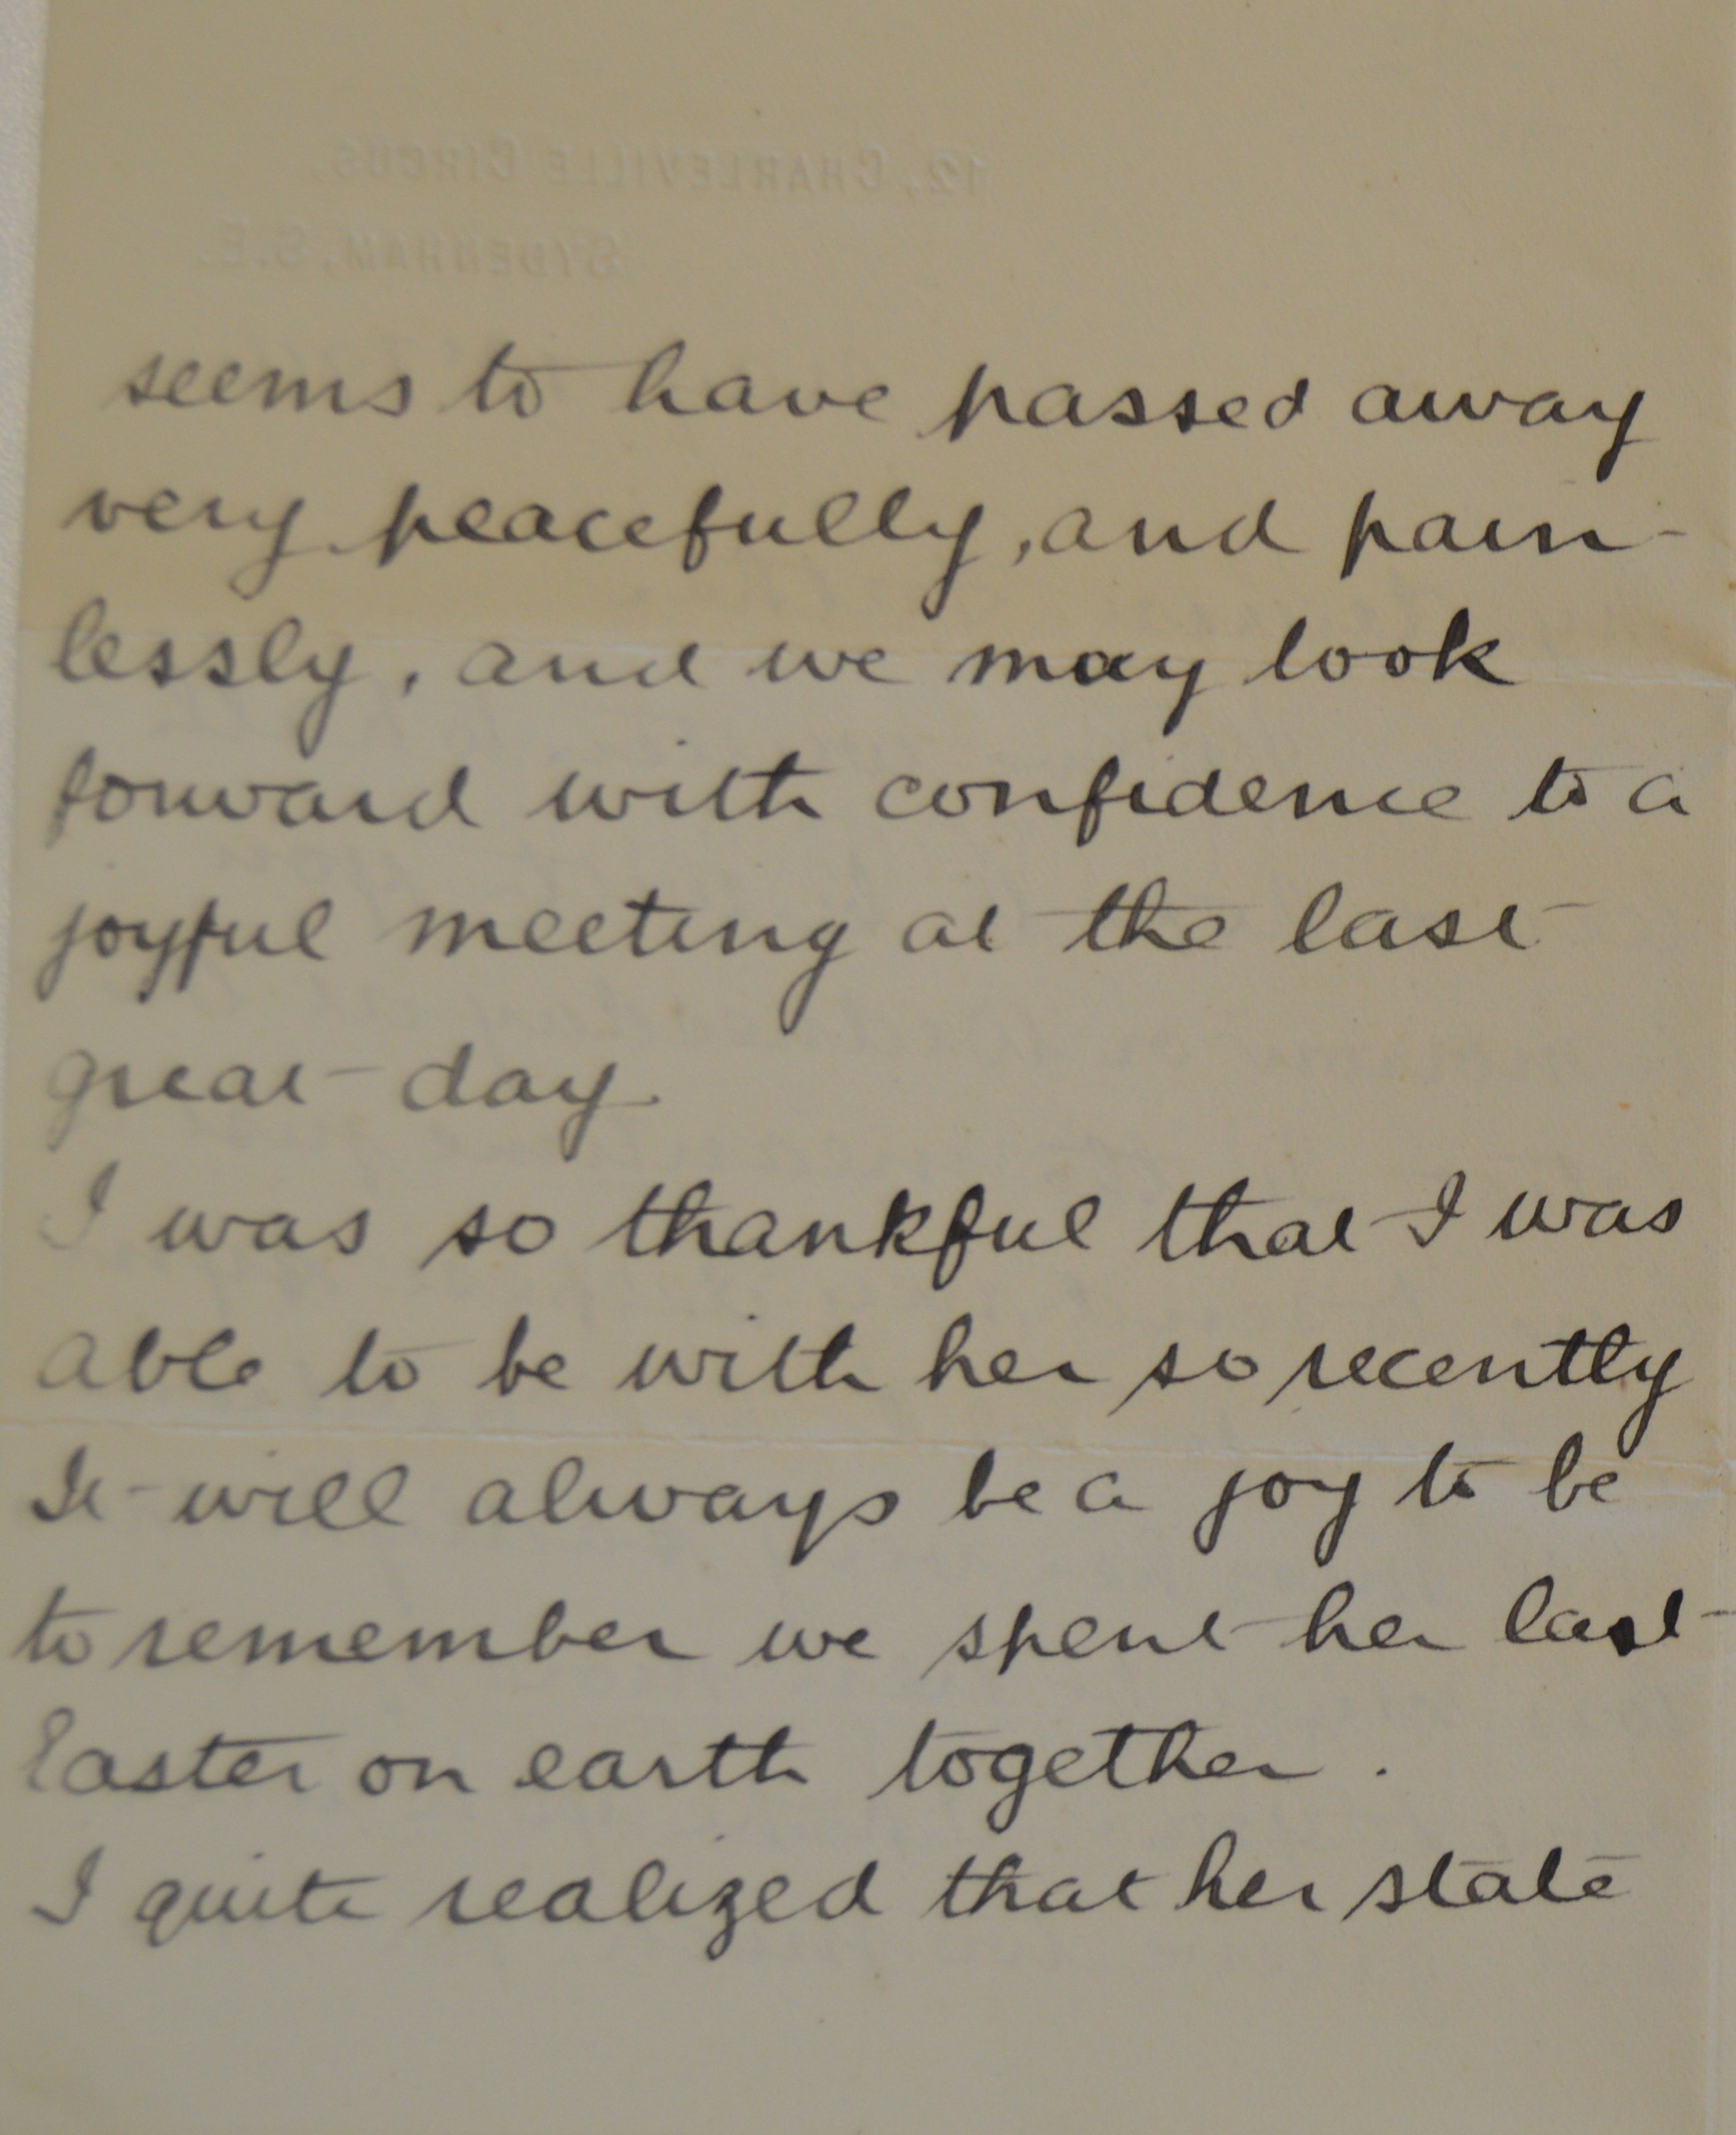 12, CHARLEVILLE CIRCUS,
SYDENHAM, S.E.
seems to have passed away
very peacefully, and pain-
lessly, and we may look
forward with confidence to a
joyful meeting at the last
great day.
I was so thankful that I was
able to be with her so recently
It will always be a joy to be
to remember we spent her last
Easter on earth together.
I quite realized that her state